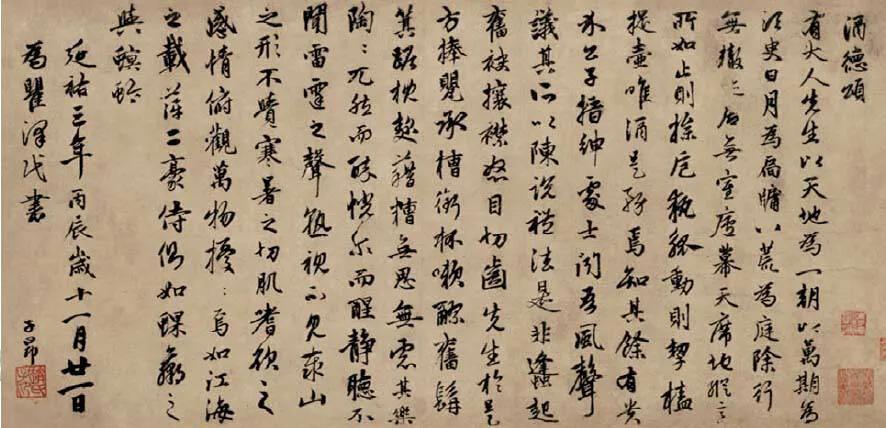 酒德頌
有大人先生以天地為一朝以萬期為
須臾日月為扃牖八荒為庭除行
無轍跡居無室廬幕天席地縱意
所如止則操卮執瓢動則挈榼
提壺唯酒是務焉知其餘有貴
介公子搢紳處士聞吾風聲
議其所以陳說禮法是非蠭起
奮袂攘襟怒目切齒先生於是
方捧罌承槽銜杯漱醪奮髯
箕踞枕麴藉糟無思無慮其樂
陶〻兀然而醉恍尔而醒靜聽不
聞雷霆之聲孰視不見泰山
之形不覺寒暑之切肌嗜欲之
感情俯觀萬物擾〻焉如江海
之載萍二豪侍側如蜾蠃之
與螟蛉
延祐三年丙辰歲十一月廿一日
為瞿澤民書
子昂